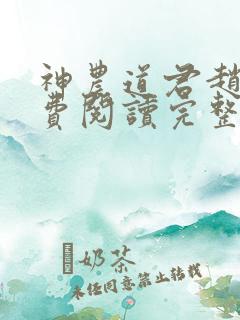 神農道君趙
費閱讀完整
奶茶
未经同意禁止转载